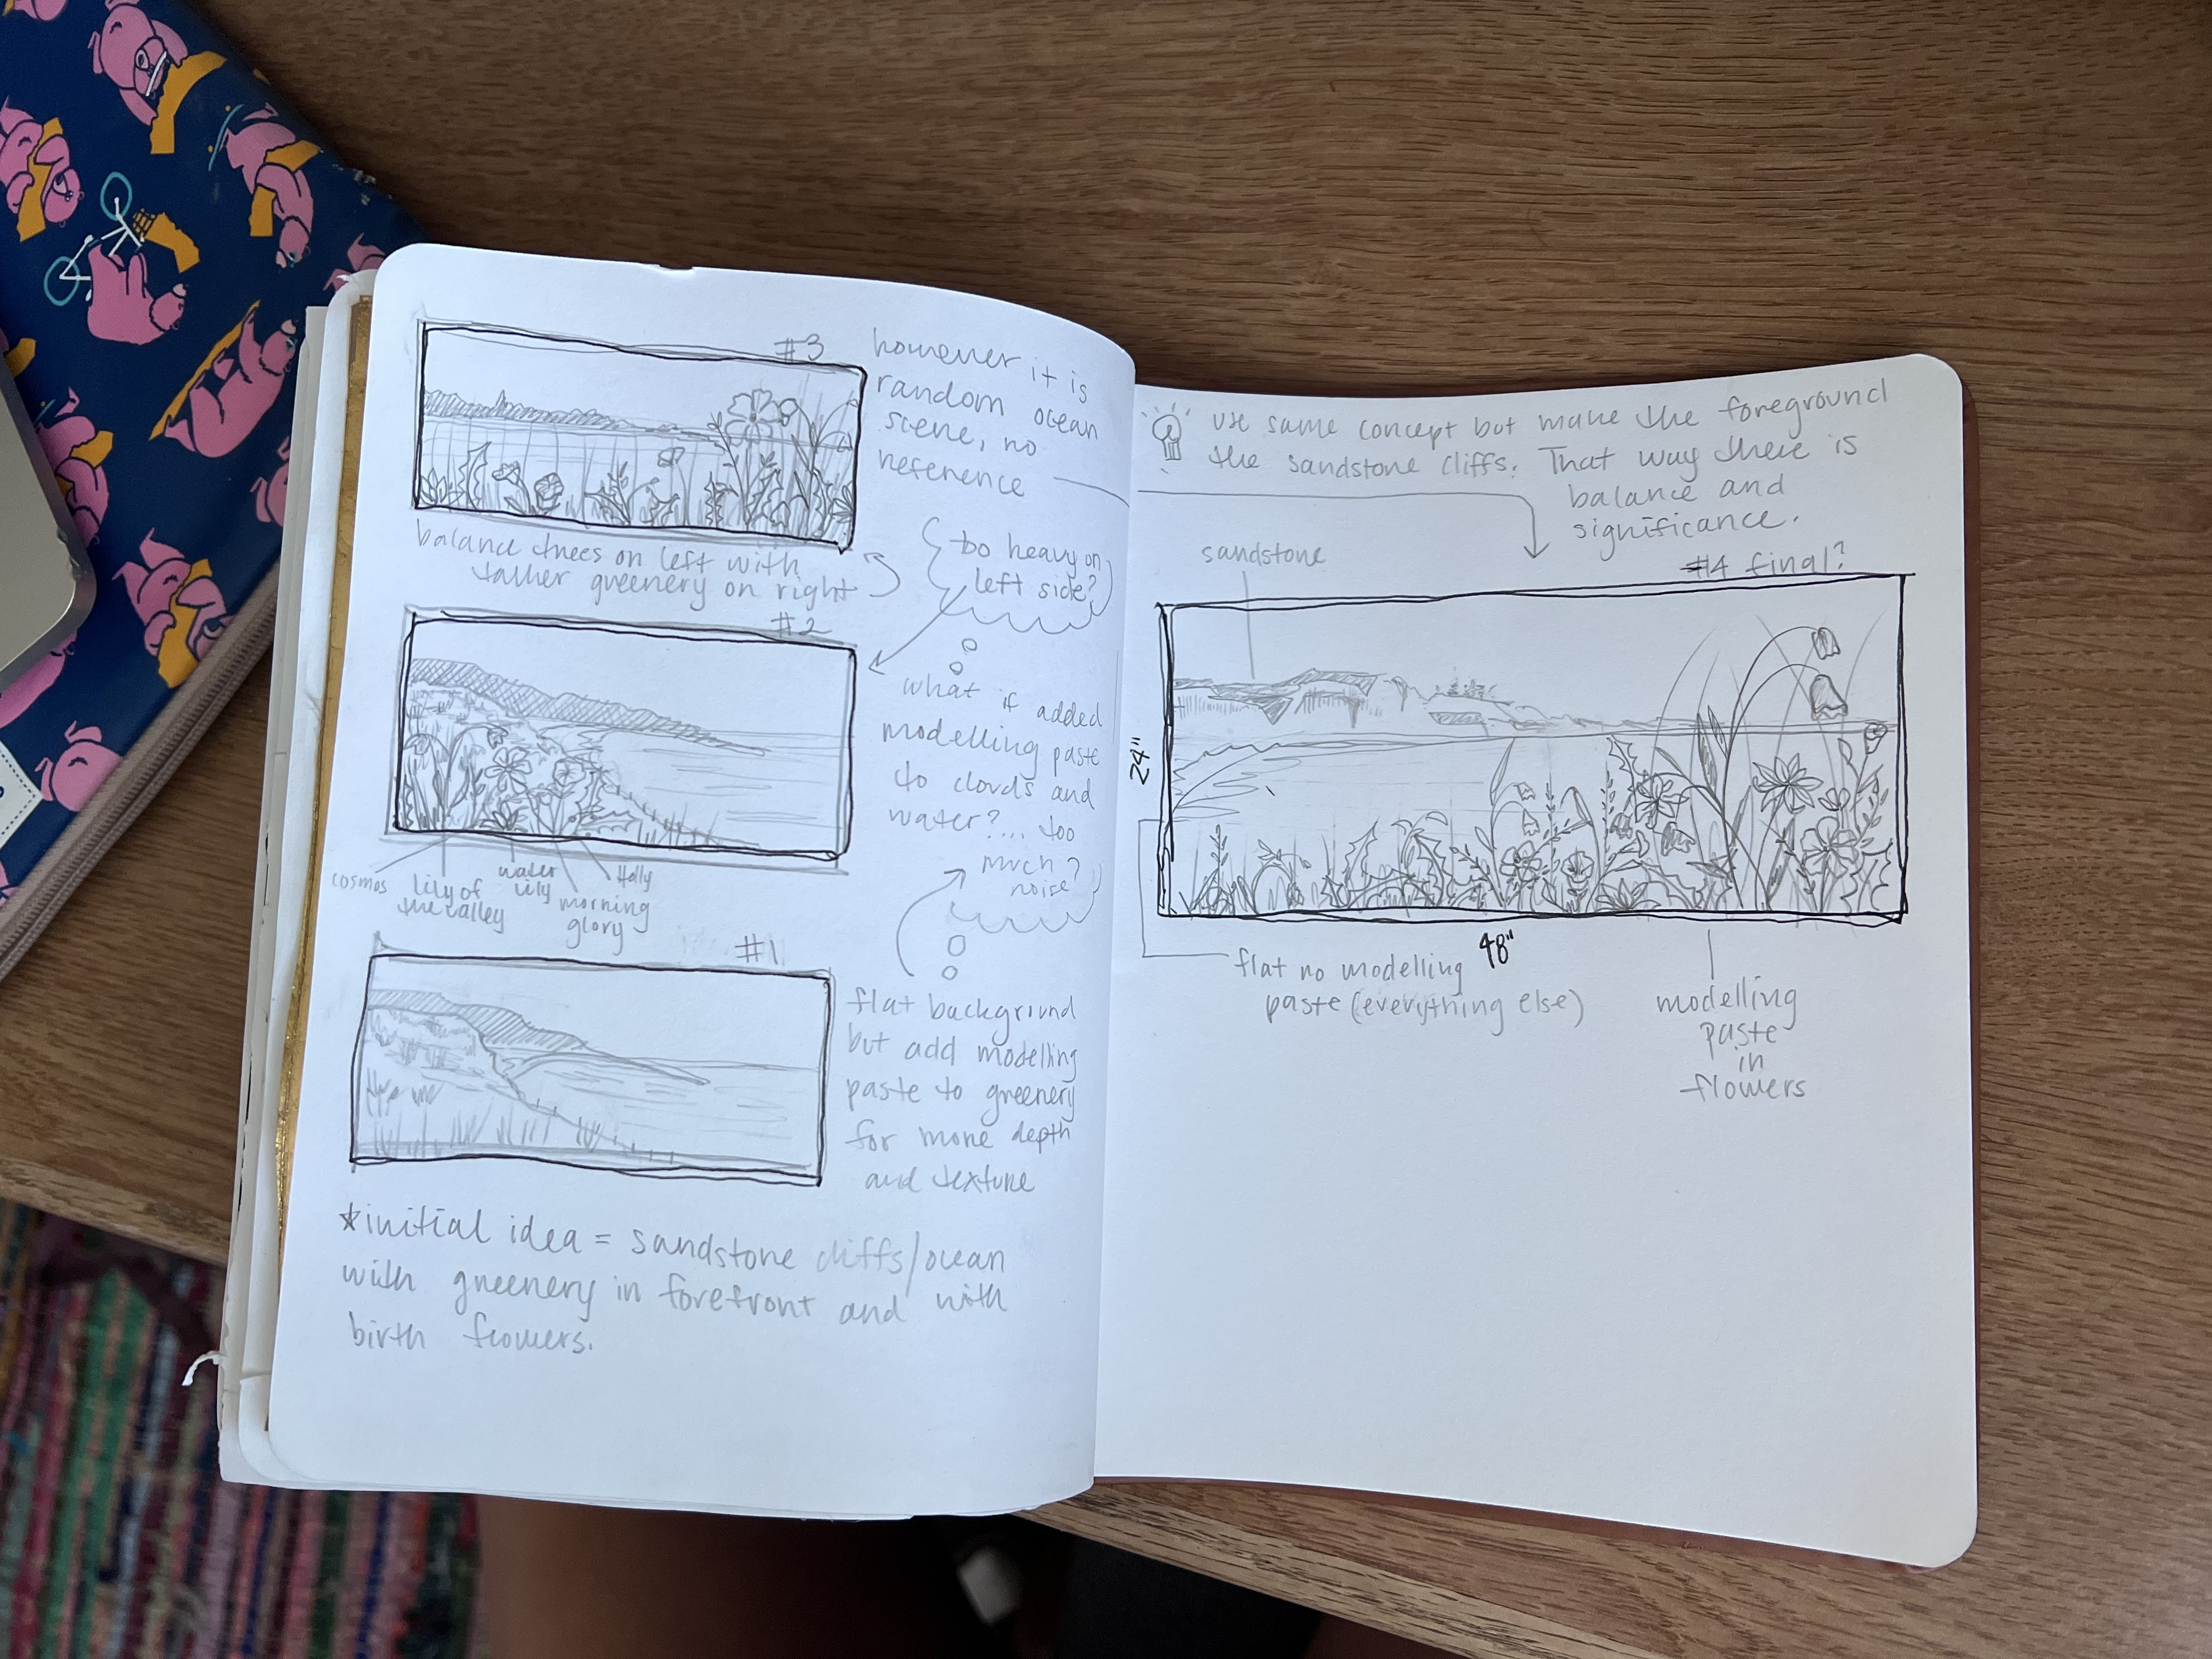 #3
however it is
random ocean
scene, no
reference
balance trees on left with
taller greenery on right
to heavy on
left side?
#2
what if added
modelling paste
to clouds and
water?... too
much?
noise
cosmos
lily of
the valley
water
lily
morning
glory
Holly
#1
flat background
but add modelling
paste to greenery
for more depth
and texture
*initial idea = sandstone cliffs/ocean
with greenery in forefront and with
birth flowers.
use same concept but make the foreground
the sandstone cliffs. That way there is
balance and
significance.
sandstone
#4 final?
24"
48"
flat no modelling
paste (everything else)
modelling
paste
in
flowers